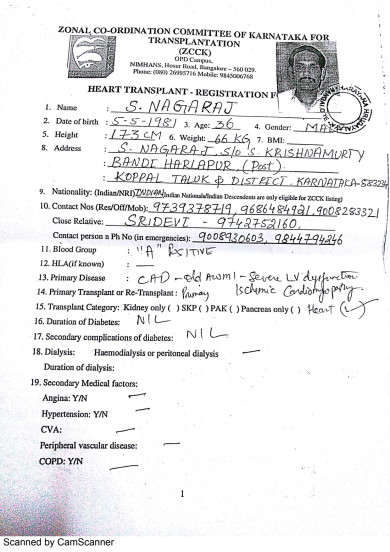 ZONAL CO-ORDINATION COMMITTEE OF KARNATAKA FOR
TRANSPLANTATION
(ZCCK)
OPD Campus,
NIMHANS, Hosur Road, Bangalore – 560 029.
Phone: (080) 26995716 Mobile: 9845006768
HEART TRANSPLANT - REGISTRATION F
1. Name : S. NAGARAJ
2. Date of birth : 5-5-1981 3. Age: 36 4. Gender: MA
5. Height : 173 CM 6. Weight: 66 KG 7. BMI:
8. Address : S. NAGARAJ, S/o S. KRISHNAMURTY
BANDI HARLAPUR, (Post).
KOPPAL TALUK & DISTRICT, KARNATAKA-583234
9. Nationality: (Indian/NRI) INDIAN (Indian Nationals/Indian Descendants are only eligible for ZCCK listing)
10. Contact Nos (Res/Off/Mob): 9739378719, 9686484921, 9008283321
Close Relative: SRIDEVI - 9742752160
Contact person n Ph No (in emergencies): 9008930603, 9844794246
11. Blood Group : "A" PSITIVE
12. HLA(if known) :
13. Primary Disease : CAD - old AWMI - Severe LV dysfunction
Ischemic Cardiomyopathy.
14. Primary Transplant or Re-Transplant : Primary
15. Transplant Category: Kidney only ( ) SKP ( ) PAK ( ) Pancreas only ( ) Heart (✓)
16. Duration of Diabetes: NIL
17. Secondary complications of diabetes: NIL
18. Dialysis: Haemodialysis or peritoneal dialysis —
Duration of dialysis:
19. Secondary Medical factors:
Angina: Y/N —
Hypertension: Y/N —
CVA: —
Peripheral vascular disease: —
COPD: Y/N —
1
Scanned by CamScanner